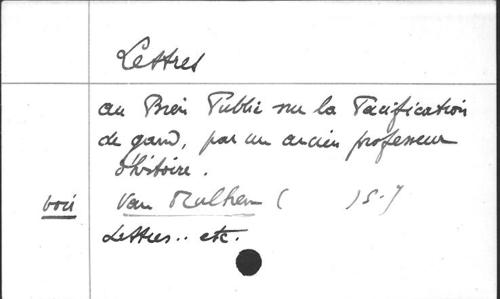 Lettres
au Bien Public sur la Pacification
de gand, par un ancien professeur
d'histoire.
voir Van Mulhem ( ) S.J
Lettres.. etc.